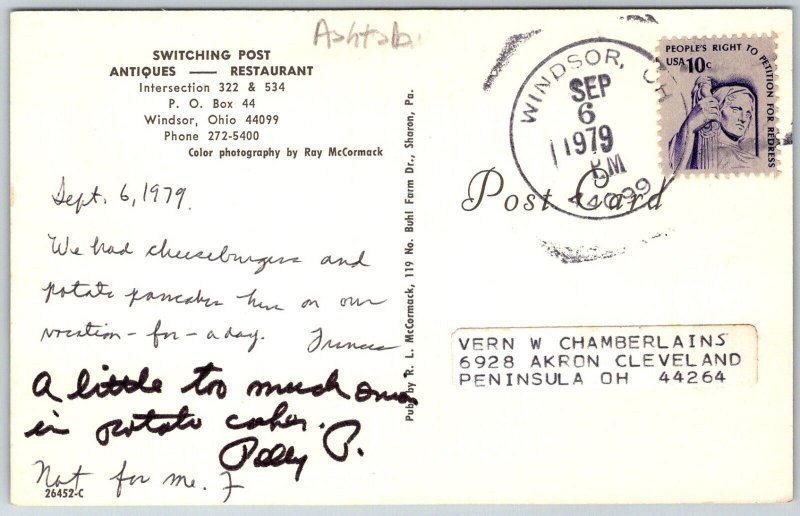 Ashtab
SWITCHING POST
ANTIQUES — RESTAURANT
Intersection 322 & 534
P. O. Box 44
Windsor, Ohio 44099
Phone 272-5400
Color photography by Ray McCormack
Sept. 6, 1979.
We had cheeseburgers and
potato pancakes here on our
vacation-for-a day. Frances
A little too much onion
in potato cakes.
Polly P.
Not for me. F
26452-C
Pub. by R. L. McCormack, 119 No. Buhl Farm Dr., Sharon, Pa.
Post Card
WINDSOR, OH
SEP
6
1979
PM
44099
PEOPLE'S RIGHT TO PETITION FOR REDRESS
USA 10c
VERN W CHAMBERLAINS
6928 AKRON CLEVELAND
PENINSULA OH 44264